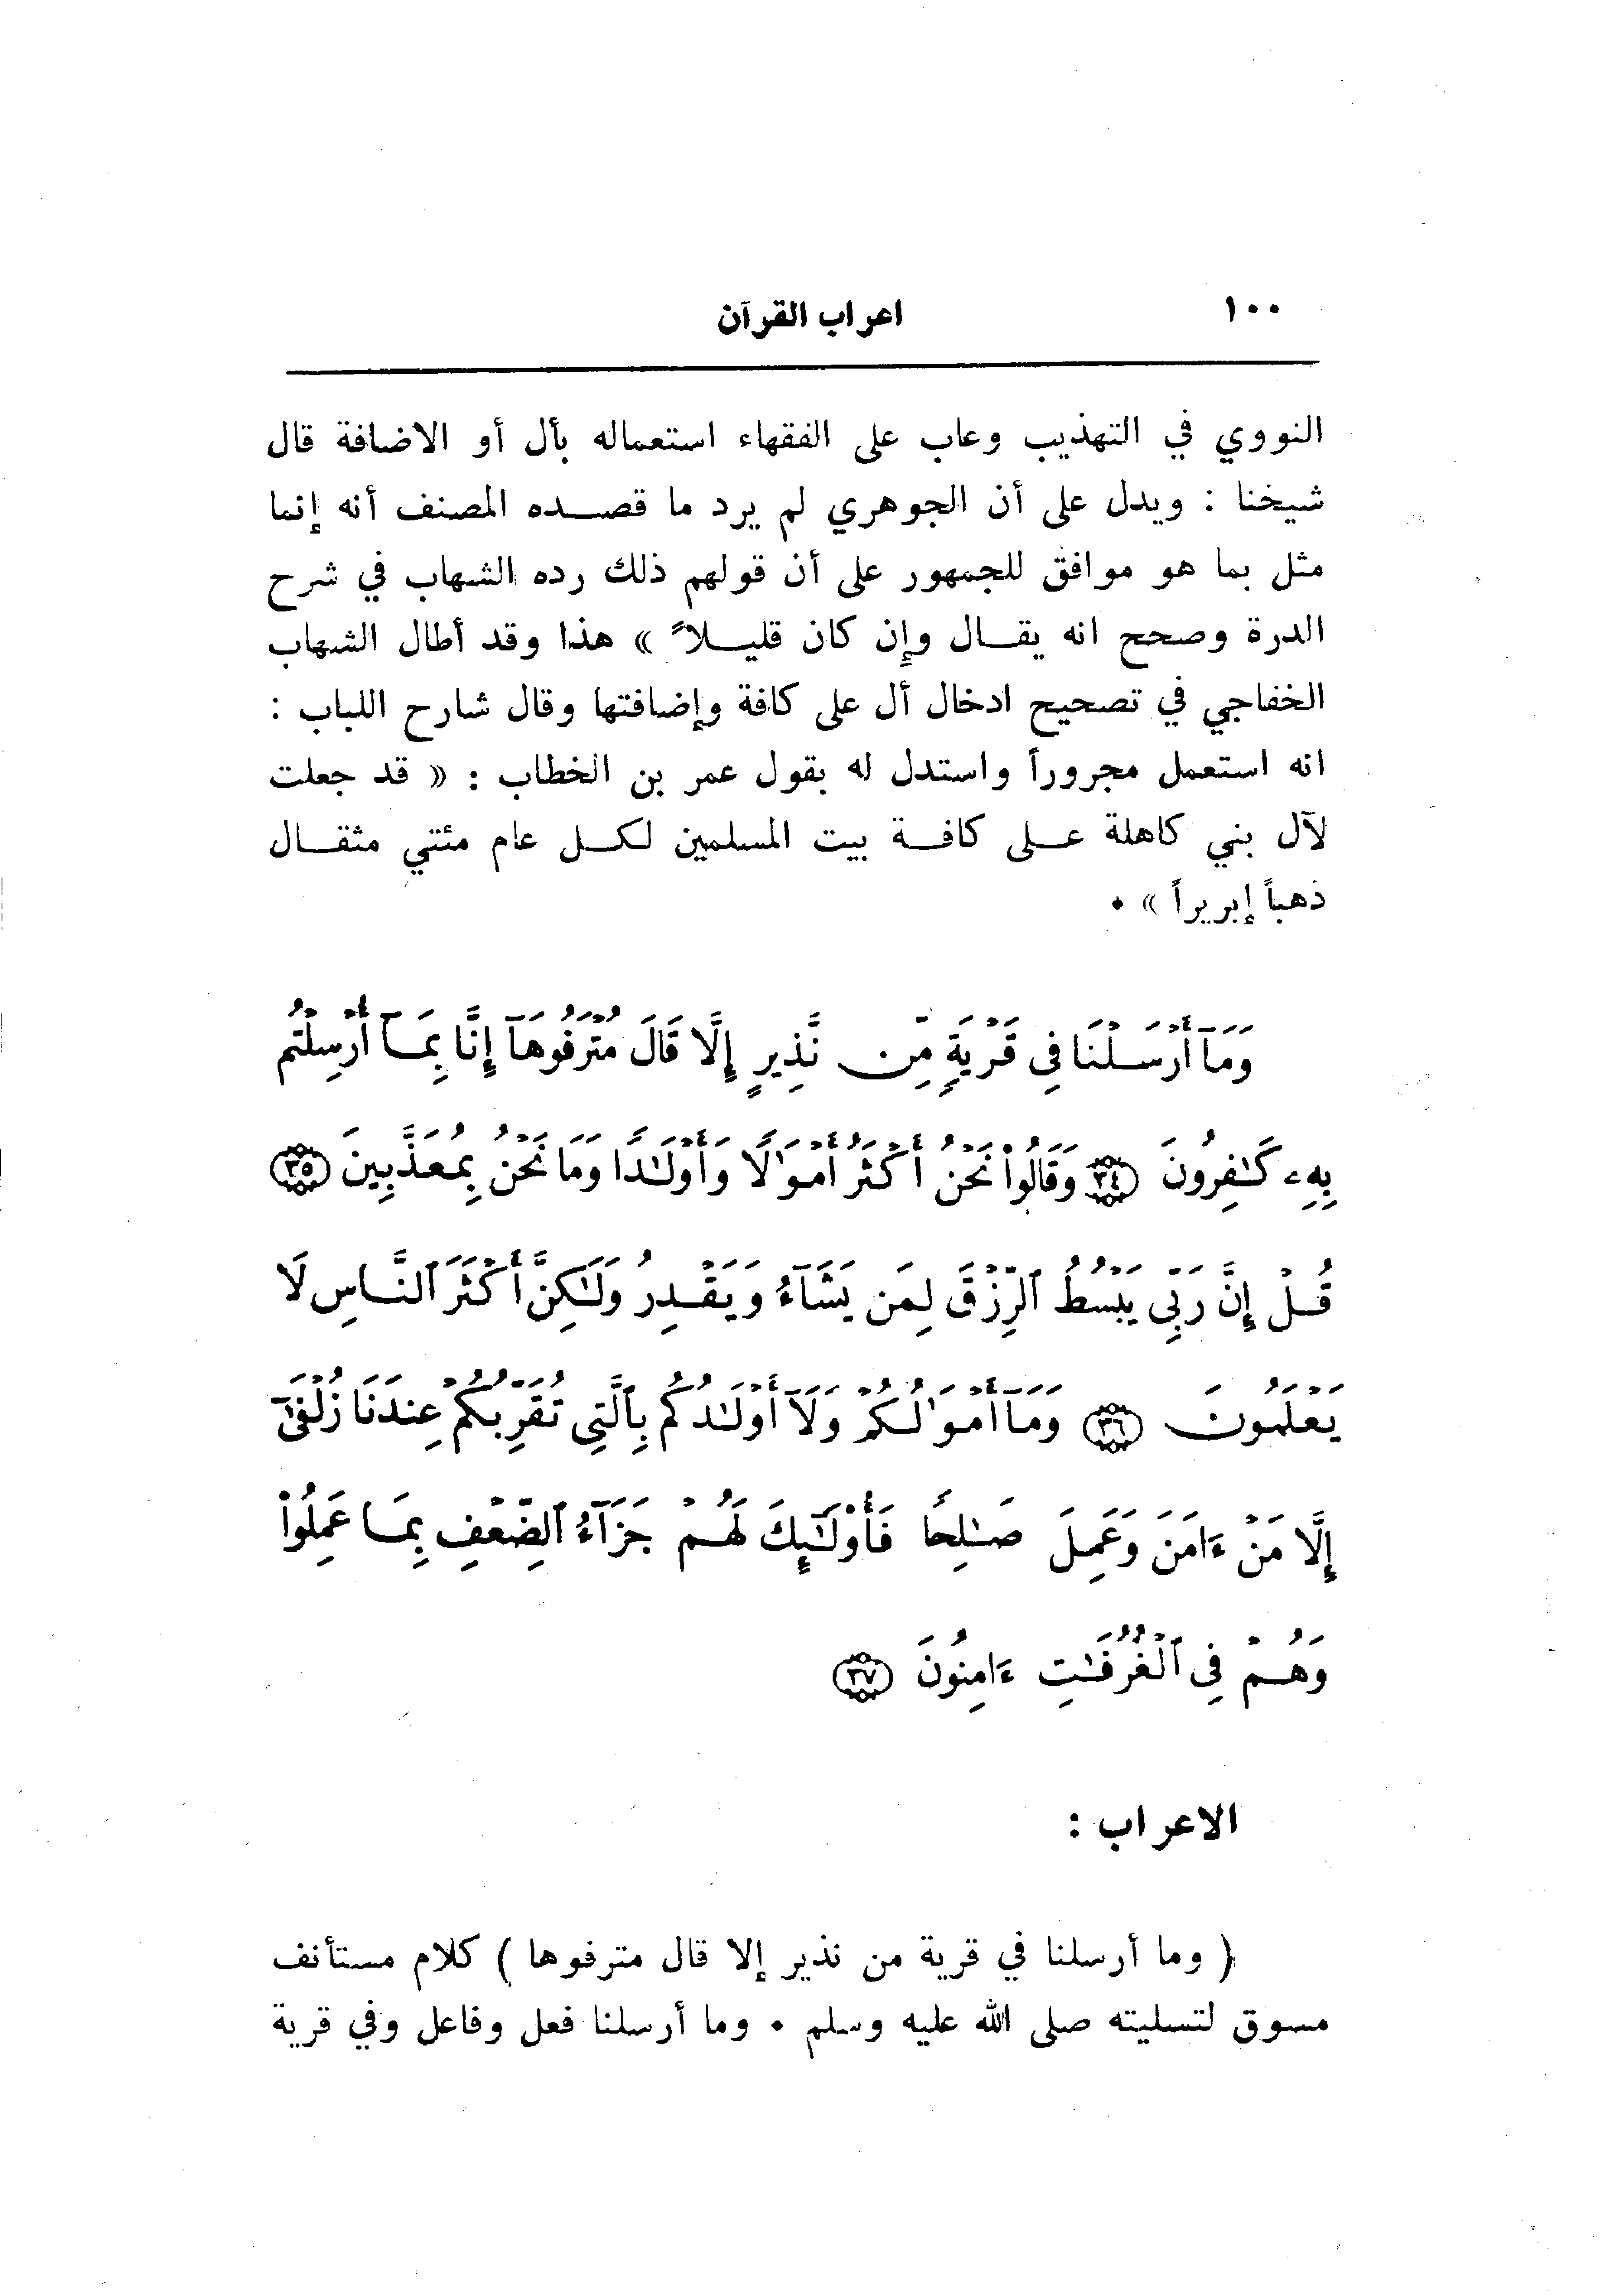 ١٠٠
اعراب القرآن
النووي في التهذيب وعاب على الفقهاء استعماله بأل أو الاضافة قال
شيخنا : ويدل على أن الجوهري لم يرد ما قصده المصنف أنه إنما
مثل بما هو موافق للجمهور على أن قولهم ذلك رده الشهاب في شرح
الدرة وصحح انه يقال وإن كان قليلاً » هذا وقد أطال الشهاب
الخفاجي في تصحيح ادخال أل على كافة وإضافتها وقال شارح اللباب :
انه استعمل مجروراً واستدل له بقول عمر بن الخطاب : « قد جعلت
لآل بني كاهلة على كافة بيت المسلمين لكل عام مئتي مثقال
ذهباً إبريراً » ٠
وَمَآ أَرْسَلْنَا فِى قَرْيَةٍ مِّن نَّذِيرٍ إِلَّا قَالَ مُتْرَفُوهَآ إِنَّا بِمَآ أُرْسِلْتُم
بِهِۦ كَـٰفِرُونَ ﴿٣٤﴾ وَقَالُوا۟ نَحْنُ أَكْثَرُ أَمْوَٰلًا وَأَوْلَـٰدًا وَمَا نَحْنُ بِمُعَذَّبِينَ ﴿٣٥﴾
قُلْ إِنَّ رَبِّى يَبْسُطُ ٱلرِّزْقَ لِمَن يَشَآءُ وَيَقْدِرُ وَلَـٰكِنَّ أَكْثَرَ ٱلنَّاسِ لَا
يَعْلَمُونَ ﴿٣٦﴾ وَمَآ أَمْوَٰلُكُمْ وَلَآ أَوْلَـٰدُكُم بِٱلَّتِى تُقَرِّبُكُمْ عِندَنَا زُلْفَىٰٓ
إِلَّا مَنْ ءَامَنَ وَعَمِلَ صَـٰلِحًا فَأُو۟لَـٰٓئِكَ لَهُمْ جَزَآءُ ٱلضِّعْفِ بِمَا عَمِلُوا۟
وَهُمْ فِى ٱلْغُرُفَـٰتِ ءَامِنُونَ ﴿٣٧﴾
الاعراب :
( وما أرسلنا في قرية من نذير إلا قال مترفوها ) كلام مستأنف
مسوق لتسليته صلى الله عليه وسلم ٠ وما أرسلنا فعل وفاعل وفي قرية